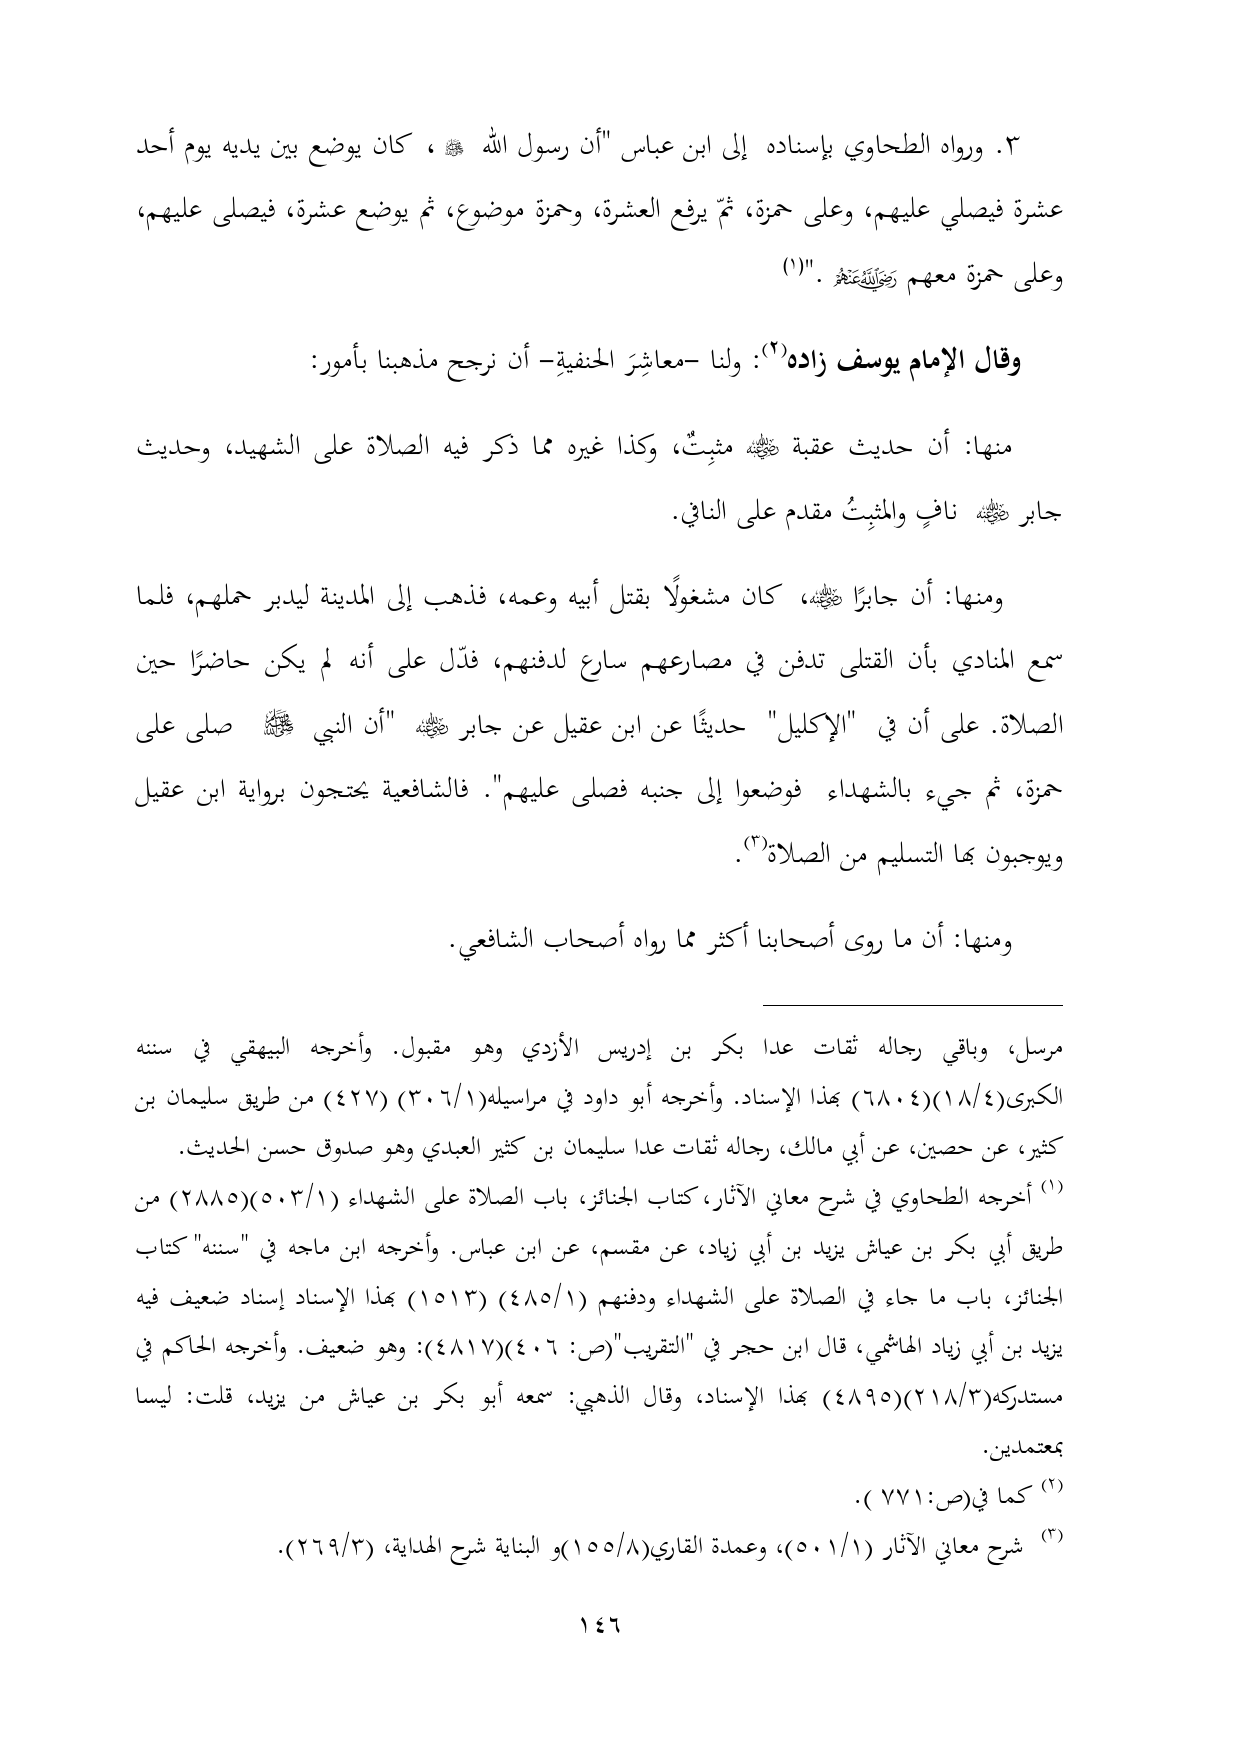 ٣. ورواه الطحاوي بإسناده إلى ابن عباس "أن رسول الله ﷺ ، كان يوضع بين يديه يوم أحد
عشرة فيصلي عليهم، وعلى حمزة، ثمّ يرفع العشرة، وحمزة موضوع، ثم يوضع عشرة، فيصلى عليهم،
وعلى حمزة معهم رَضِيَ اللَّهُ عَنْهُمْ ."(١)
وقال الإمام يوسف زاده(٢): ولنا –معاشِرَ الحنفيةِ– أن نرجح مذهبنا بأمور:
منها: أن حديث عقبة رضي الله عنه مثبِتٌ، وكذا غيره مما ذكر فيه الصلاة على الشهيد، وحديث
جابر رضي الله عنه نافٍ والمثبِتُ مقدم على النافي.
ومنها: أن جابرًا رضي الله عنه، كان مشغولًا بقتل أبيه وعمه، فذهب إلى المدينة ليدبر حملهم، فلما
سمع المنادي بأن القتلى تدفن في مصارعهم سارع لدفنهم، فدّل على أنه لم يكن حاضرًا حين
الصلاة. على أن في "الإكليل" حديثًا عن ابن عقيل عن جابر رضي الله عنه "أن النبي ﷺ صلى على
حمزة، ثم جيء بالشهداء فوضعوا إلى جنبه فصلى عليهم". فالشافعية يحتجون برواية ابن عقيل
ويوجبون بها التسليم من الصلاة(٣).
ومنها: أن ما روى أصحابنا أكثر مما رواه أصحاب الشافعي.
مرسل، وباقي رجاله ثقات عدا بكر بن إدريس الأزدي وهو مقبول. وأخرجه البيهقي في سننه
الكبرى(١٨/٤)(٦٨٠٤) بهذا الإسناد. وأخرجه أبو داود في مراسيله(٣٠٦/١) (٤٢٧) من طريق سليمان بن
كثير، عن حصين، عن أبي مالك، رجاله ثقات عدا سليمان بن كثير العبدي وهو صدوق حسن الحديث.
(١) أخرجه الطحاوي في شرح معاني الآثار، كتاب الجنائز، باب الصلاة على الشهداء (٥٠٣/١)(٢٨٨٥) من
طريق أبي بكر بن عياش يزيد بن أبي زياد، عن مقسم، عن ابن عباس. وأخرجه ابن ماجه في "سننه" كتاب
الجنائز، باب ما جاء في الصلاة على الشهداء ودفنهم (٤٨٥/١) (١٥١٣) بهذا الإسناد إسناد ضعيف فيه
يزيد بن أبي زياد الهاشمي، قال ابن حجر في "التقريب"(ص: ٤٠٦)(٤٨١٧): وهو ضعيف. وأخرجه الحاكم في
مستدركه(٢١٨/٣)(٤٨٩٥) بهذا الإسناد، وقال الذهبي: سمعه أبو بكر بن عياش من يزيد، قلت: ليسا
بمعتمدين.
(٢) كما في(ص:٧٧١ ).
(٣) شرح معاني الآثار (٥٠١/١)، وعمدة القاري(١٥٥/٨)و البناية شرح الهداية، (٢٦٩/٣).
١٤٦